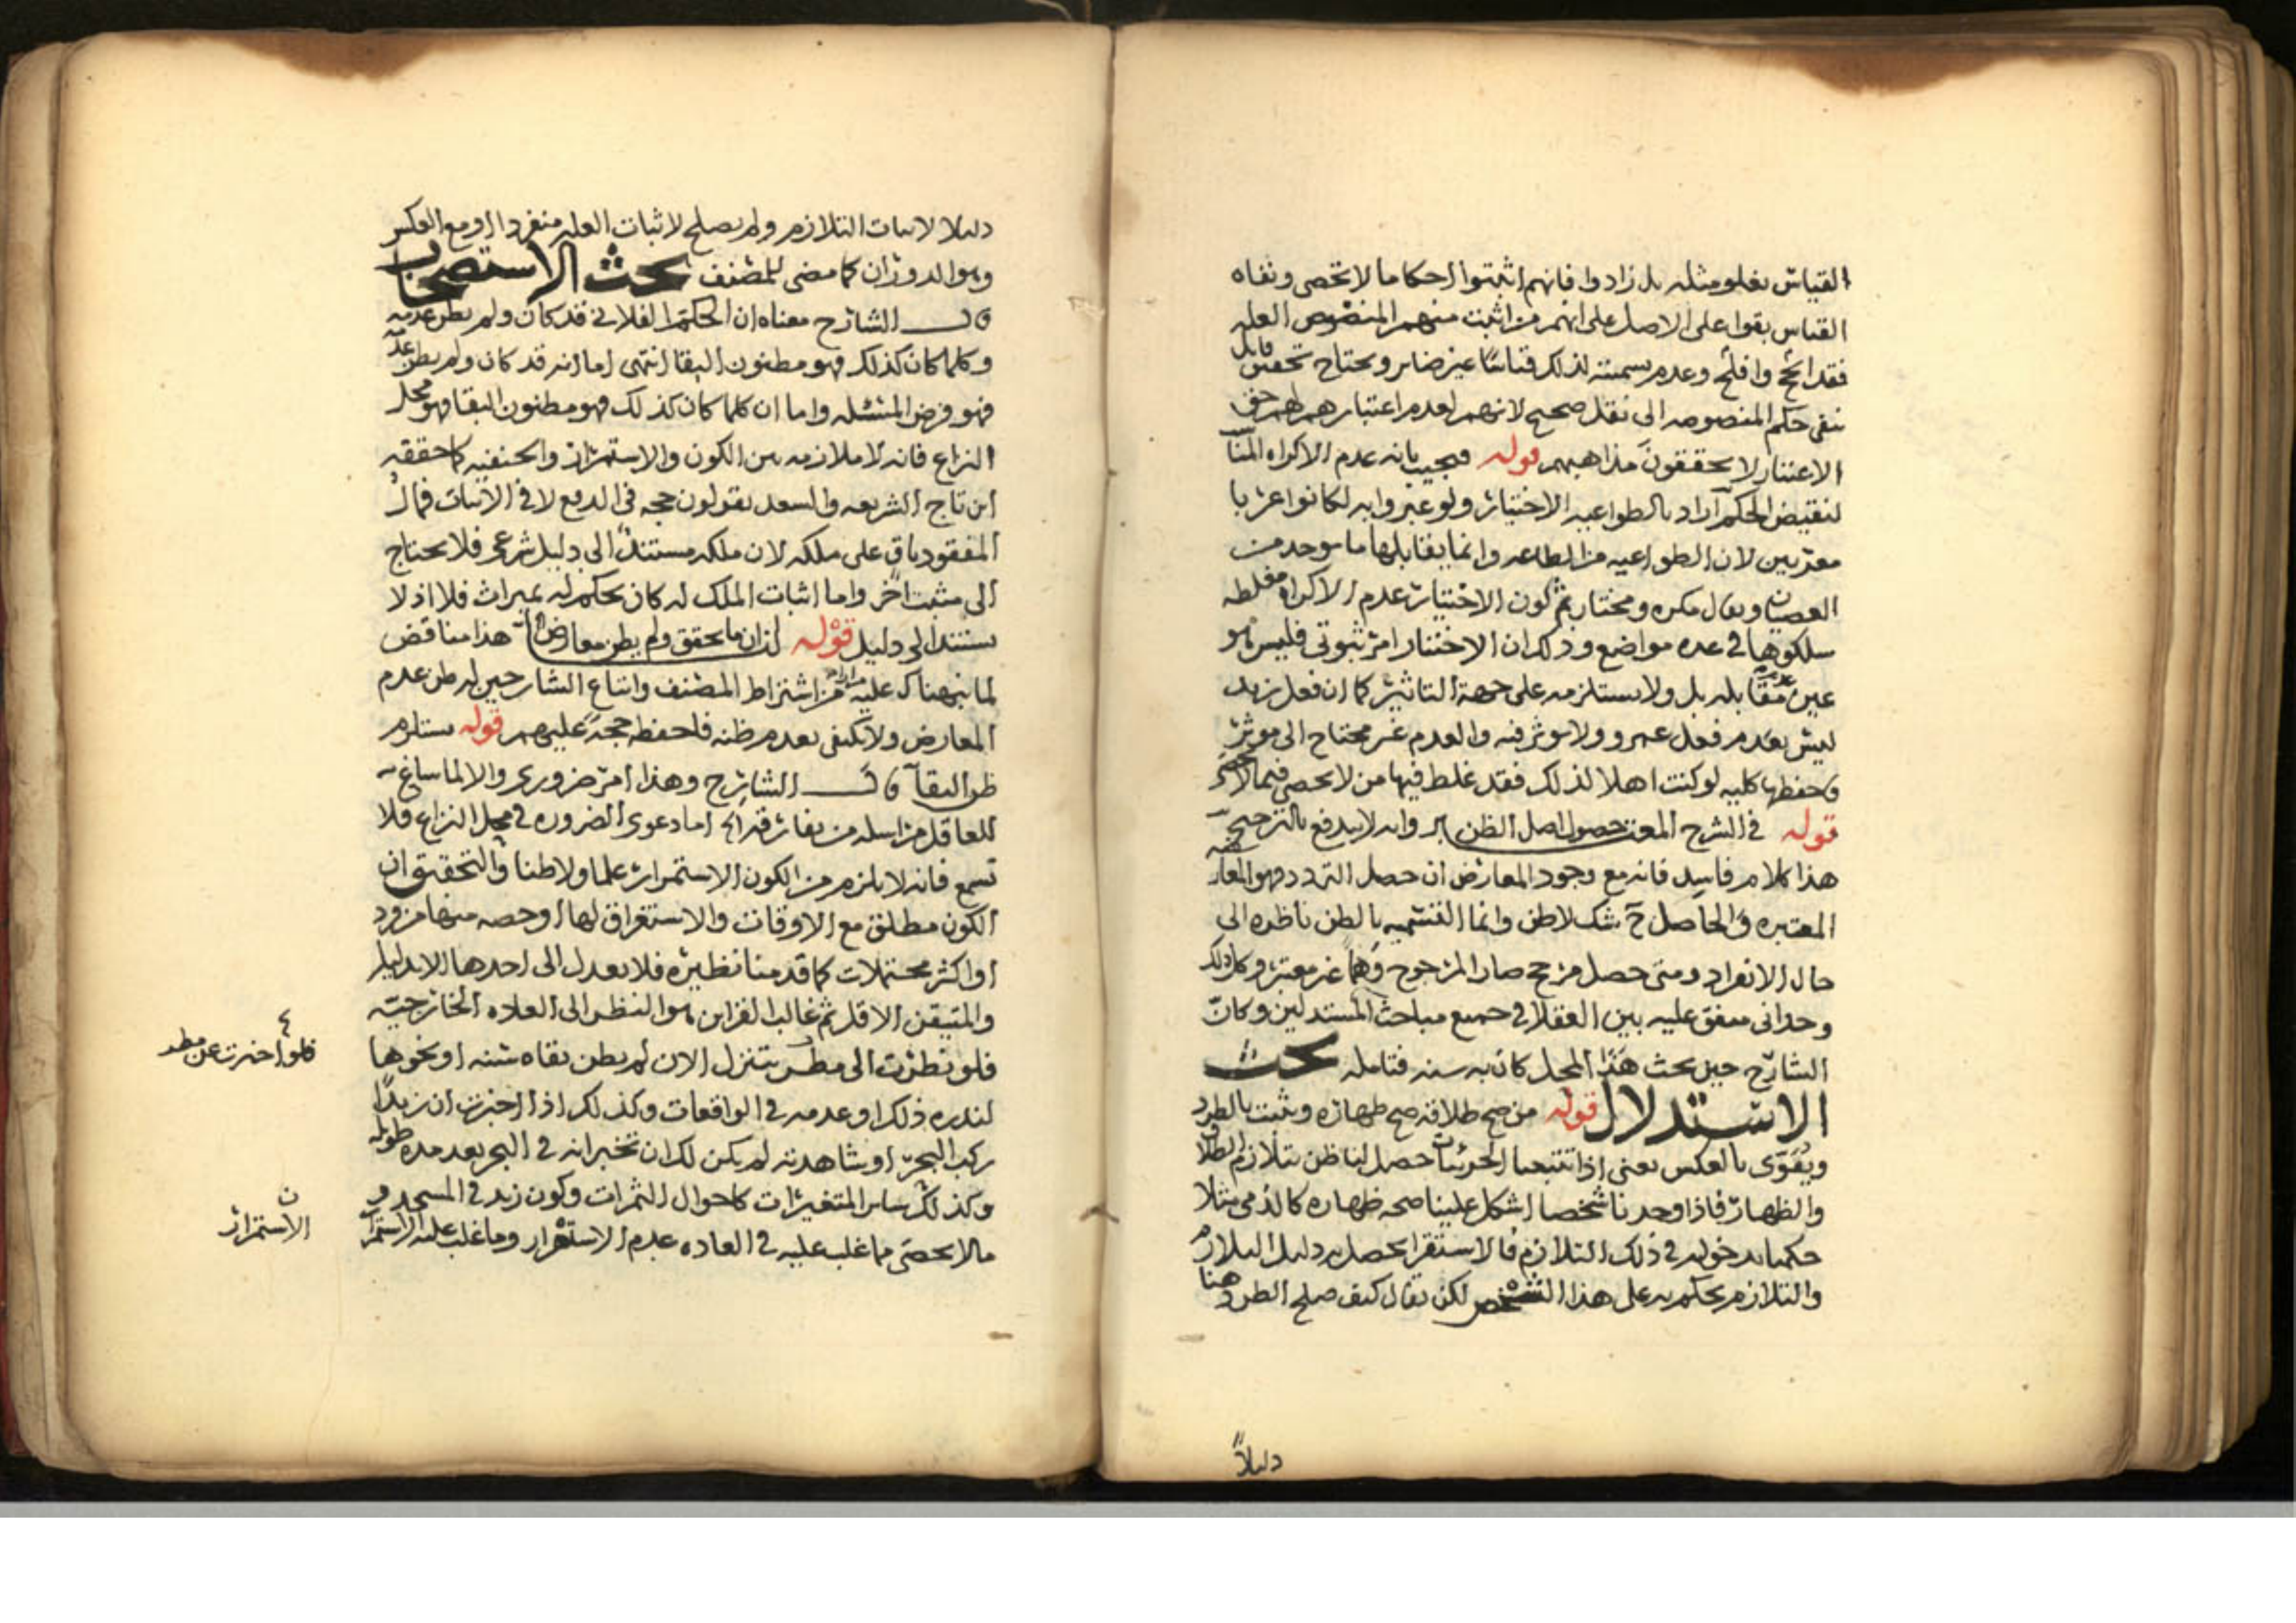 القياس بغلو مثله بل زادوا فانهم اثبتوا احكاما لا تحصى ونفاه
القياس بقوا على الاصل على انهم من اثبت منهم المنصوص العله
فقد انجح وافلح وعدم تسميته لذلك قياسا غير ضاير ويحتاج تحقيق قايل
بنفي حكم المنصوصه الى نقل صحيح لانهم لعدم اعتبارهم لهم حق
الاعتبار لا يحققون مذاهبهم قوله فيجيب بانه عدم الاكراه المنا
لنقيض الحكم اراد بالطواعيه الاختيار ولو عبروا به لكانوا عربا
معربين لان الطواعيه من الطاعه وانما يقابلها ما يوجد من
العصيان ويقال مكره ومختار ثم كون الاختيار عدم الاكراه مغلطه
سلكوها في عده مواضع وذلك ان الاختيار امر ثبوتي فليس هو
عين عدم مقابله بل ولا يستلزمه على جهة التاثير كما ان فعل زيد
ليس بعدم فعل عمرو ولا موثر فيه والعدم غير محتاج الى موثر
فاحفظها كليه لو كنت اهلا لذلك فقد غلط فيها من لا يحصى فيما لا يحصى
قوله في الشرح المعتبر حصول اصل الظن وانه لا يندفع بالترجيح
هذا كلام فاسد فانه مع وجود المعارض ان حصل التردد فهو المعارضه
المعتبره والحاصل ح شك لا ظن وانما التسميه بالظن ناظره الى
حال الانفراد ومتى حصل مرجح صار المرجوح وهما غير معتبر وكل ذلك
وجداني متفق عليه بين العقلا في جميع مباحث المستدلين وكان
الشارح حين بحث هذا المحل كان به سنه فتامله بحث
الاستدلال قوله من صح طلاقه صح ظهاره ويثبت بالطرد
ويقوى بالعكس يعني اذا تتبعنا الجزئيات حصل لنا ظن تلازم الطلاق
والظهار فاذا وجدنا شخصا اشكل علينا صحه ظهاره كالذمي مثلا
حكمنا بدخوله في ذلك التلازم فالاستقرا يحصل به دليل التلازم
والتلازم يحكم به على هذا الشخص لكن يقال كيف صلح الطرد هنا
دليلاً
دليلا لاثبات التلازم ولم يصلح لاثبات العله منفردا او مع العكس
وهو الدوران كما مضى للمصنف بحث الاستصحاب
قال الشارح معناه ان الحكم الفلاني قد كان ولم يظن عدمه
وكلما كان كذلك فهو مظنون البقا انتهى اما انه قد كان ولم يظن عدمه
فهو فرض المسئله واما ان كلما كان كذلك فهو مظنون البقا فهو محل
النزاع فانه لا ملازمه بين الكون والاستمرار والحنفيه كما حققه
ابن تاج الشريعه والسعد يقولون حجه في الدفع لا في الاثبات فمال
المفقود باق على ملكه لان ملكه مستند الى دليل شرعي فلا يحتاج
الى مثبت آخر واما اثبات الملك له كان يحكم له بميراث فلا اذ لا
يستند الى دليل قوله لنا ان ما تحقق ولم يظن معارض هذا مناقض
لما نبهناك عليه مرارا من اشتراط المصنف واتباع الشارحين له ظن عدم
المعارض ولا يكفي بعدم ظنه فاحفظه حجة عليهم قوله يستلزم
ظن البقا قال الشارح وهذا امر ضروري والا لما ساغ
للعاقل مراسله من يفارقه الخ اما دعوى الضروره في محل النزاع فلا
تسمع فانه لا يلزم من الكون الاستمرار علما ولا ظنا والتحقيق ان
الكون مطلق مع الاوقات والاستغراق لها او حصه منها من زود
او اكثر محتملات كما قدمنا نظيره فلا يعدل الى احدها الا بدليل
والمتيقن الاقل ثم غالب القراين هو النظر الى العاده الخارجيه
فلو نظرت الى مطر يتنزل الان لم يظن بقاه سنه او نحوها
لندره ذلك او عدمه في الواقعات وكذلك اذا اخبرت ان زيدا
ركب البحر او شاهدته لم يكن لك ان تخبر انه في البحر بعد مده طويله
وكذلك ساير المتغيرات كاحوال الثمرات وكون زيد في المسجد و
مالا يحصى مما غلب عليه في العاده عدم الاستقرار وما غلب عليه الاستمرار
فلو اخبرت عن مطر
ن
الاستمرار